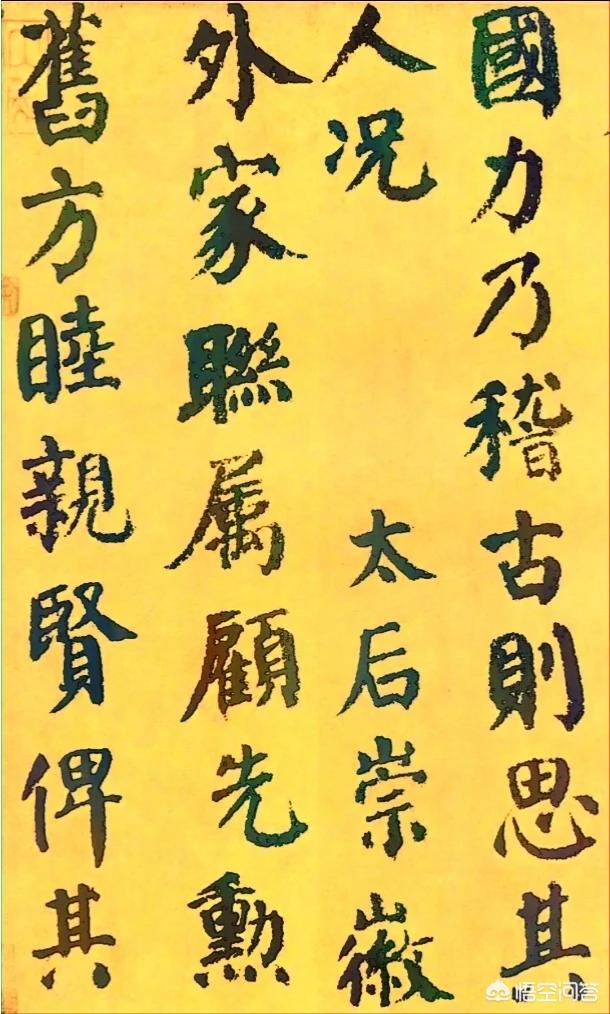 國力乃稽古則思其
人况 太后崇徽
外家聯属顧先勲
舊方睦親賢俾其
悟空问答